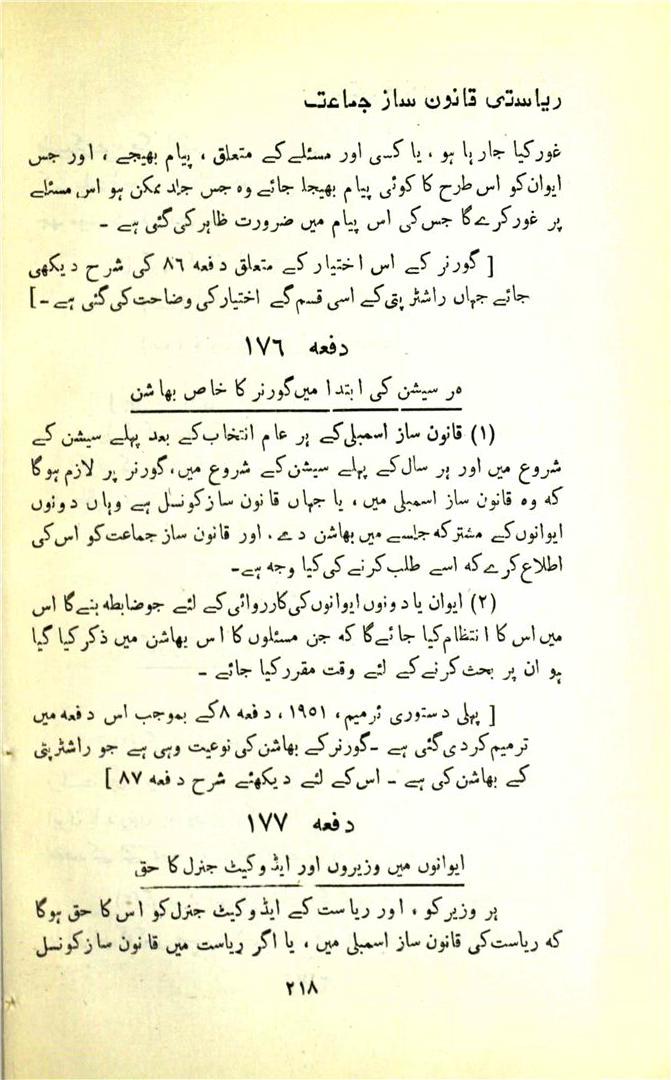 ریاستی قانون ساز جماعت
غور کیا جا رہا ہو ، یا کسی اور مسئلے کے متعلق ، پیام بھیجے ، اور جس
ایوان کو اس طرح کا کوئی پیام بھیجا جائے وہ جس جلد ممکن ہو اس مسئلے
پر غور کرے گا جس کی اس پیام میں ضرورت ظاہر کی گئی ہے ۔
[ گورنر کے اس اختیار کے متعلق دفعہ ۸۶ کی شرح دیکھی
جائے جہاں راشٹر پتی کے اسی قسم گے اختیار کی وضاحت کی گئی ہے ۔ ]
دفعہ ۱۷۶
ہر سیشن کی ابتدا میں گورنر کا خاص بھاشن
(۱) قانون ساز اسمبلی کے ہر عام انتخاب کے بعد پہلے سیشن کے
شروع میں اور ہر سال کے پہلے سیشن کے شروع میں، گورنر پر لازم ہوگا
کہ وہ قانون ساز اسمبلی میں ، یا جہاں قانون ساز کونسل ہے وہاں دونوں
ایوانوں کے مشترکہ جلسے میں بھاشن دے ، اور قانون ساز جماعت کو اس کی
اطلاع کرے کہ اسے طلب کرنے کی کیا وجہ ہے ۔
(۲) ایوان یا دونوں ایوانوں کی کارروائی کے لئے جو ضابطہ بنے گا اس
میں اس کا انتظام کیا جائے گا کہ جن مسئلوں کا اس بھاشن میں ذکر کیا گیا
ہو ان پر بحث کرنے کے لئے وقت مقرر کیا جائے ۔
[ پہلی دستوری ترمیم ، ۱۹۵۱ ، دفعہ ۸ کے بموجب اس دفعہ میں
ترمیم کردی گئی ہے ۔ گورنر کے بھاشن کی نوعیت وہی ہے جو راشٹر پتی
کے بھاشن کی ہے ۔ اس کے لئے دیکھئے شرح دفعہ ۸۷ ]
دفعہ ۱۷۷
ایوانوں میں وزیروں اور ایڈوکیٹ جنرل کا حق
ہر وزیر کو ، اور ریاست کے ایڈوکیٹ جنرل کو اس کا حق ہوگا
کہ ریاست کی قانون ساز اسمبلی میں ، یا اگر ریاست میں قانون ساز کونسل
۲۱۸